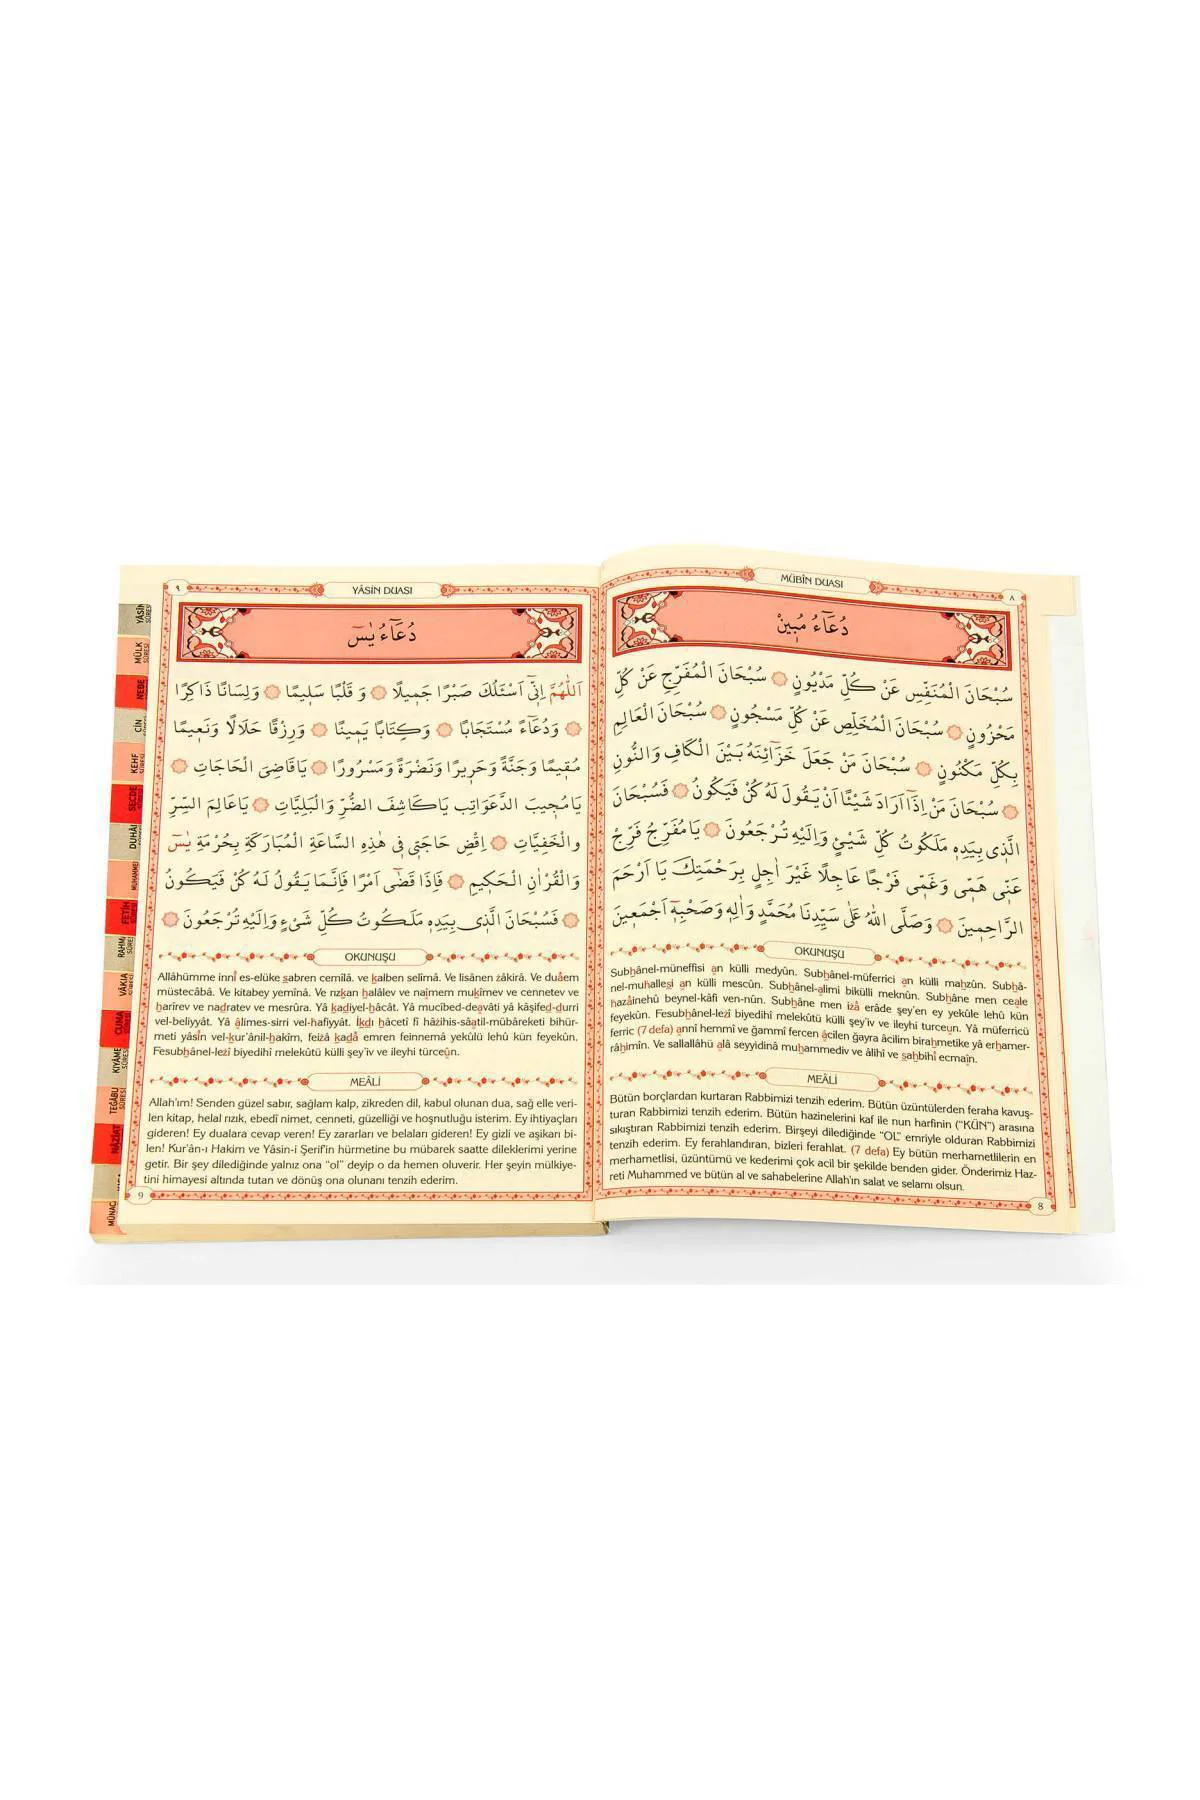 MÜBÎN DUASI
٨
دُعَاءُ مُبٖينْ
سُبْحَانَ الْمُنَفِّسِ عَنْ كُلِّ مَدْيُونٍ ۞ سُبْحَانَ الْمُفَرِّجِ عَنْ كُلِّ
مَحْزُونٍ ۞ سُبْحَانَ الْمُخَلِّصِ عَنْ كُلِّ مَسْجُونٍ ۞ سُبْحَانَ الْعَالِمِ
بِكُلِّ مَكْنُونٍ ۞ سُبْحَانَ مَنْ جَعَلَ خَزَٓائِنَهُ بَيْنَ الْكَافِ وَالنُّونِ
۞ سُبْحَانَ مَنْ اِذَٓا اَرَادَ شَيْئًا اَنْ يَقُولَ لَهُ كُنْ فَيَكُونُ ۞ فَسُبْحَانَ
الَّذٖى بِيَدِهٖ مَلَكُوتُ كُلِّ شَيْئٍ وَاِلَيْهِ تُرْجَعُونَ ۞ يَا مُفَرِّجُ فَرِّجْ
عَنّٖى هَمّٖى وَغَمّٖى فَرْجًا عَاجِلًا غَيْرَ اٰجِلٍ بِرَحْمَتِكَ يَا اَرْحَمَ
الرَّاحِمٖينَ ۞ وَصَلَّى اللّٰهُ عَلٰى سَيِّدِنَا مُحَمَّدٍ وَاٰلِهٖ وَصَحْبِهٖٓ اَجْمَعٖينَ
OKUNUŞU
Subhânel-müneffisi an külli medyûn. Subhânel-müferrici an külli mahzûn. Subhâ-
nel-muhallesi an külli mescûn. Subhânel-alimi bikülli meknûn. Subhâne men ceale
hazâinehû beynel-kâfi ven-nûn. Subhâne men izâ erâde şey'en ey yekûle lehû kün
feyekûn. Fesubhânel-lezî biyedihî melekûtü külli şey'iv ve ileyhi türceun. Yâ müferricü
ferric (7 defa) annî hemmî ve ğammî fercen âcilen ğayra âcilim birahmetike yâ erhamer-
râhimîn. Ve sallallâhü alâ seyyidinâ muhammediv ve âlihî ve sahbihî ecmaîn.
MEÂLİ
Bütün borçlardan kurtaran Rabbimizi tenzih ederim. Bütün üzüntülerden feraha kavuş-
turan Rabbimizi tenzih ederim. Bütün hazinelerini kaf ile nun harfinin ("KÜN") arasına
sıkıştıran Rabbimizi tenzih ederim. Birşeyi dilediğinde "OL" emriyle olduran Rabbimizi
tenzih ederim. Ey ferahlandıran, bizleri ferahlat. (7 defa) Ey bütün merhametlilerin en
merhametlisi, üzüntümü ve kederimi çok acil bir şekilde benden gider. Önderimiz Haz-
reti Muhammed ve bütün al ve sahabelerine Allah'ın salat ve selamı olsun.
8
٩
YÂSİN DUASI
دُعَٓاءُ يٰسٓ
اَللّٰهُمَّ اِنّٖٓى اَسْئَلُكَ صَبْرًا جَمٖيلًا ۞ وَ قَلْبًا سَلٖيمًا ۞ وَلِسَانًا ذَاكِرًا
۞ وَدُعَٓاءً مُسْتَجَابًا ۞ وَكِتَابًا يَمٖينًا ۞ وَرِزْقًا حَلَالًا وَنَعٖيمًا
مُقٖيمًا وَجَنَّةً وَحَرٖيرًا وَنَضْرَةً وَمَسْرُورًا ۞ يَاقَاضِىَ الْحَاجَاتِ ۞
يَامُجٖيبَ الدَّعَوَاتِ يَاكَاشِفَ الضُّرِّ وَالْبَلِيَّاتِ ۞ يَاعَالِمَ السِّرِّ
والْخَفِيَّاتِ ۞ اِقْضِ حَاجَتٖى فٖى هٰذِهِ السَّاعَةِ الْمُبَارَكَةِ بِحُرْمَةِ يٰسٓ
وَالْقُرْاٰنِ الْحَكٖيمِ ۞ فَاِذَا قَضٰٓى اَمْرًا فَاِنَّمَا يَقُولُ لَهُ كُنْ فَيَكُونُ
۞ فَسُبْحَانَ الَّذٖى بِيَدِهٖ مَلَكُوتُ كُلِّ شَىْءٍ وَاِلَيْهِ تُرْجَعُونَ ۞
OKUNUŞU
Allâhümme innî es-elüke sabren cemîlâ. ve kalben selîmâ. Ve lisânen zâkirâ. Ve duâem
müstecâbâ. Ve kitabey yemînâ. Ve rızkan halâlev ve naîmem mukîmev ve cennetev ve
harîrev ve nadratev ve mesrûra. Yâ kadiyel-hâcât. Yâ mucîbed-deavâti yâ kâşifed-durri
vel-beliyyât. Yâ âlimes-sirri vel-hafiyyât. İkdı hâcetî fî hâzihis-sâatil-mübâreketi bihür-
meti yâsîn vel-kur'ânil-hakîm, feizâ kadâ emren feinnemâ yekûlü lehû kün feyekûn.
Fesubhânel-lezî biyedihî melekûtü külli şey'iv ve ileyhi türceûn.
MEÂLİ
Allah'ım! Senden güzel sabır, sağlam kalp, zikreden dil, kabul olunan dua, sağ elle veri-
len kitap, helal rızık, ebedî nimet, cenneti, güzelliği ve hoşnutluğu isterim. Ey ihtiyaçları
gideren! Ey dualara cevap veren! Ey zararları ve belaları gideren! Ey gizli ve aşikarı bi-
len! Kur'ân-ı Hakim ve Yâsin-i Şerif'in hürmetine bu mübarek saatte dileklerimi yerine
getir. Bir şey dilediğinde yalnız ona "ol" deyip o da hemen oluverir. Her şeyin mülkiye-
tini himayesi altında tutan ve dönüş ona olunanı tenzih ederim.
9
YÂSİN
SÛRESİ
MÜLK
SÛRESİ
NEBE
CİN
KEHF
SECDE
DUHÂN
MUHAMMED
FETİH
RAHM
VÂKIA
CUMA
KIYÂME
TEĞÂBÜ
NÂZİAT
MÜNAC